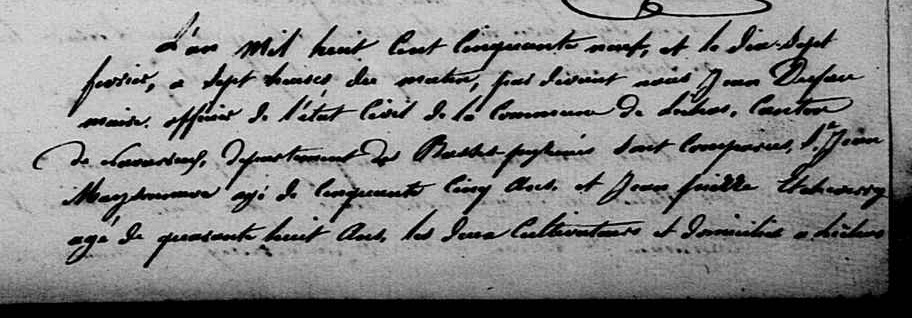 L'an mil huit cent cinquante neuf, et le dix-sept
fevrier, a sept heures du matin, par devant nous Jean
maire. officier de l'état civil de la commune de canton
de département des Basses-pyrénées sont comparus, Jean
agé de cinquante cinq ans. et Jean pierre Etcheverry
agé de quarante huit ans, les deux cultivateurs et domiciliés a